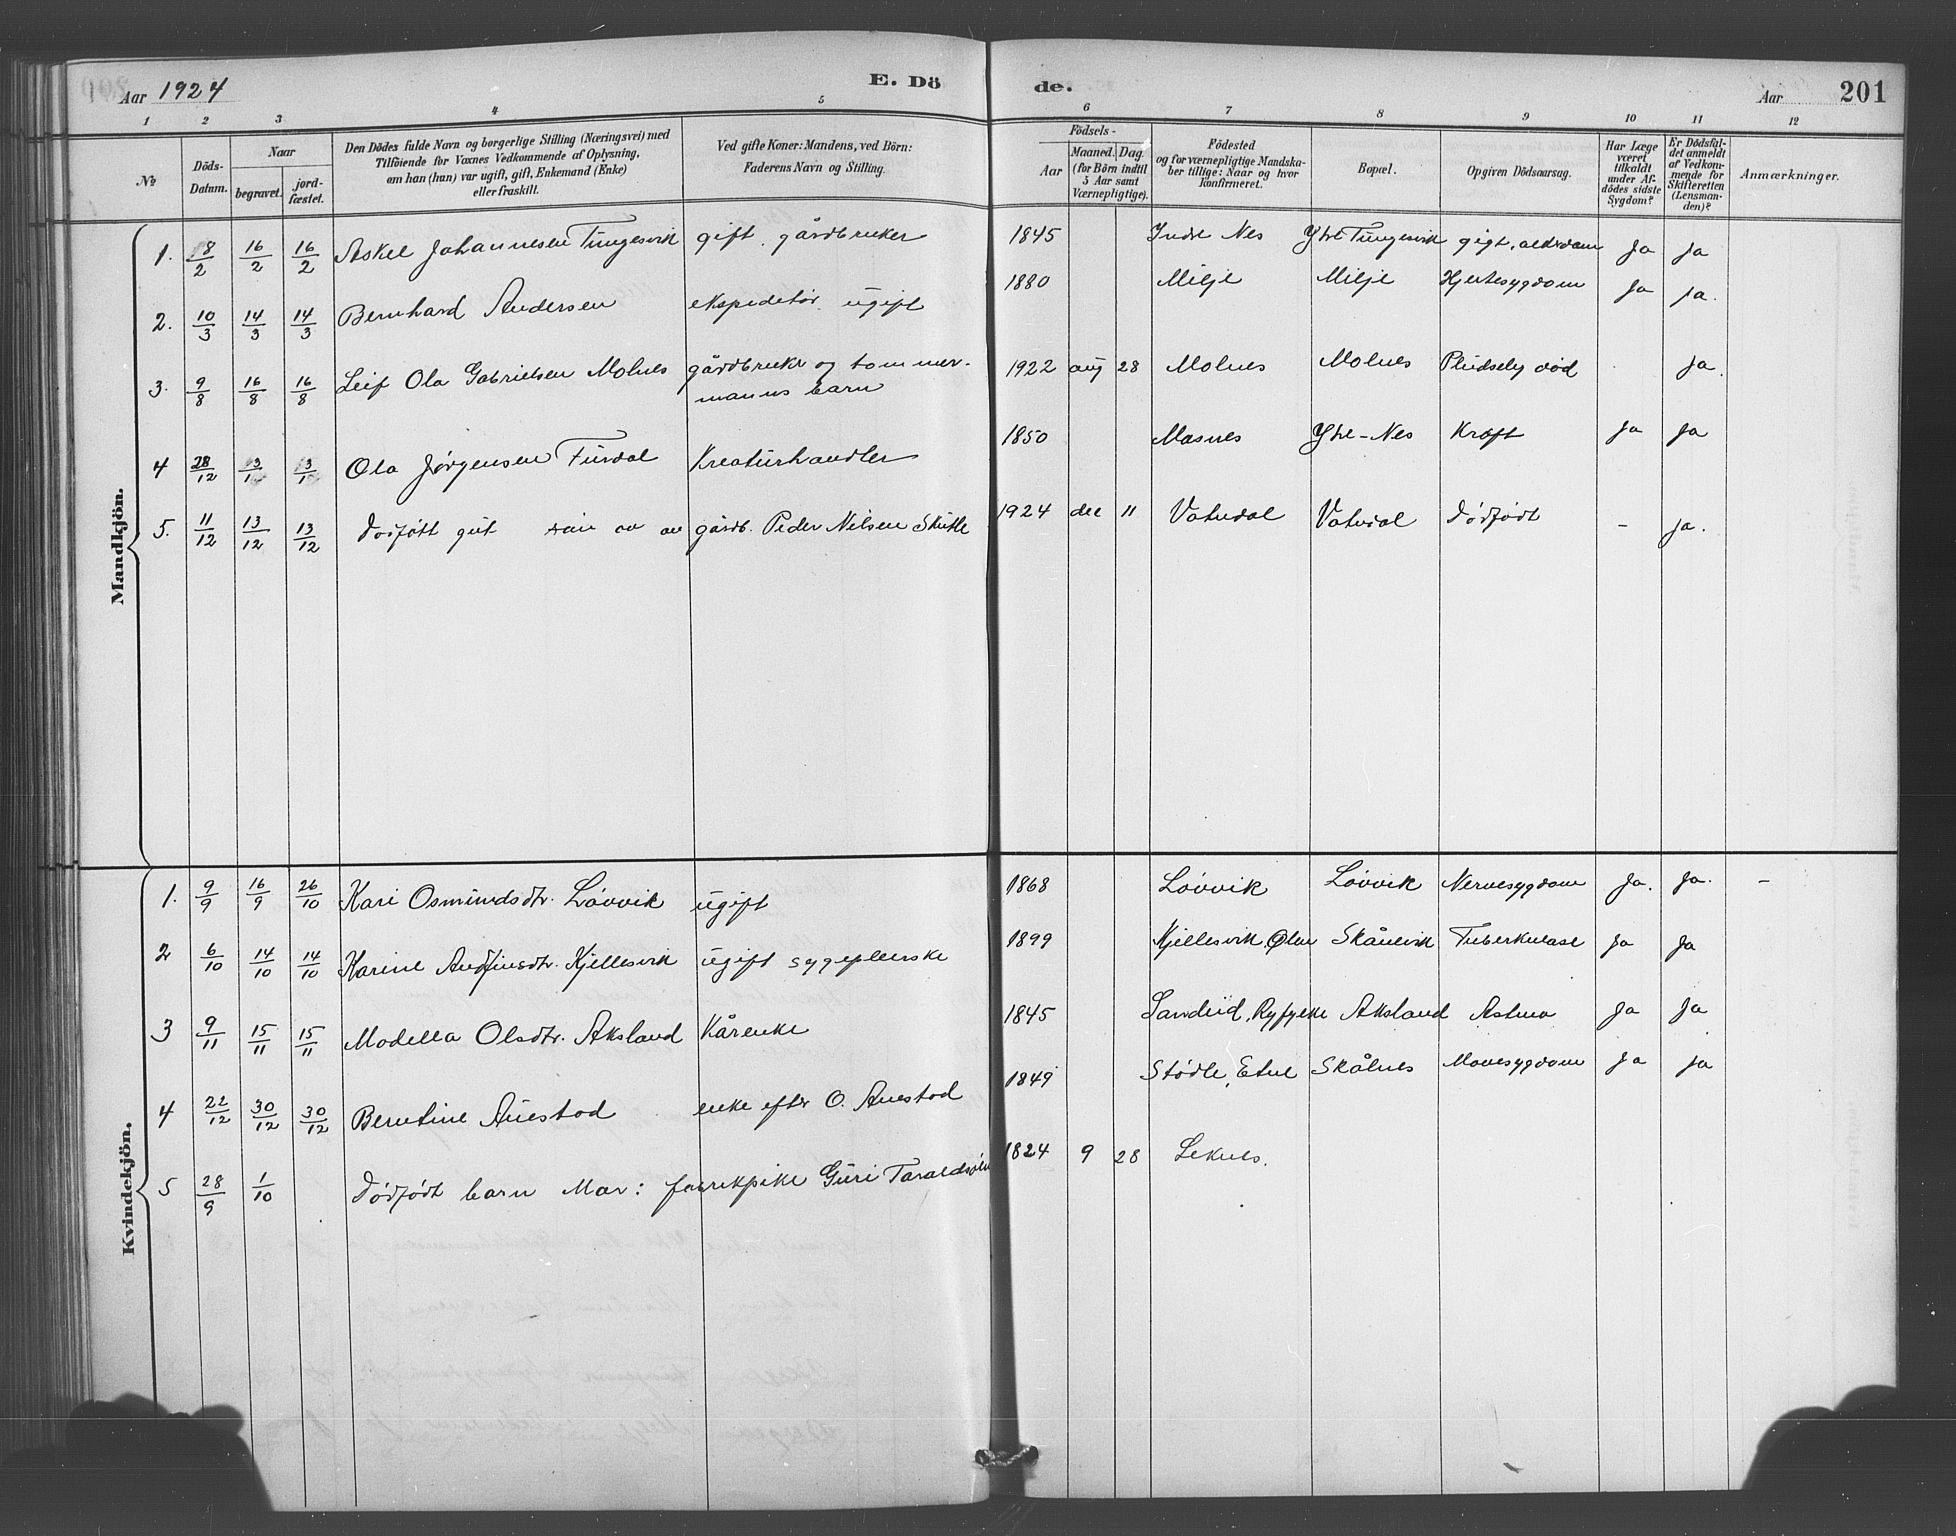 Aar 1924 E. Dö de. Aar 201
1 2 3 4 5 6 7 8 9 10 11 12
№
Döds-Datum.
Naar begravet. jord-fæstet.
Den Dödes fulde Navn og borgerlige Stilling (Næringsvei) med
Tilföiende for Voxnes Vedkommende af Oplysning,
om han (hun) var ugift, gift, Enkemand (Enke)
eller fraskilt.
Ved gifte Koner: Mandens, ved Börn:
Faderens Navn og Stilling.
Födsels-
Aar Maaned. Dag.
(for Börn indtil
5 Aar samt
Værnepligtige).
Födested
og for værnepligtige Mandska-
ber tillige: Naar og hvor
konfirmeret.
Bopæl.
Opgiven Dödsaarsag.
Har Læge
været
tilkaldt
under Af-
dödes sidste
Sygdom?
Er Dödsfal-
det anmeldt
af Vedkom-
mende for
Skifteretten
(Lensman-
den)?
Anmærkninger.
Mandkjön.
1. 8/2 16/2 16/2 Askel Johannesen Tungesvik gift. gårdbruker 1845 Indre Nes Ytre Tungesvik gigt, alderdom Ja Ja
2. 10/3 14/3 14/3 Bernhard Andersen ekspeditør ugift 1880 Milje Milje Hjertesygdom Ja Ja.
3. 9/8 16/8 16/8 Leif Ola Gabrielsen Molnes gårdbruker og tømmer-
manns barn 1922 aug 28 Molnes Molnes Pludselig død Ja.
4 28/12 3/1 3/1 Ola Jørgensen Furdal Kreaturhandler 1850 Masnes Ytre-Nes Kræft Ja Ja
5. 11/12 13/12 13/12 Dødfødt gut av gårdb. Peder Nilsen Skutle 1924 dec 11 Vatndal Vatndal Dødfødt - Ja.
Kvindekjön.
1. 9/9 16/9 26/10 Kari Osmundsdtr. Løvvik ugift 1868 Løvvik Løvvik Nervesygdom Ja. Ja. -
2 6/10 14/10 14/10 Karine Andfinsdtr. Kjellesvik ugift sygepleierske 1899 Kjellesvik, Ølen Skånevik Tuberkulose Ja Ja
3 9/11 15/11 15/11 Modella Olsdtr. Aksland Kårenke 1845 Sandeid, Ryfylke Aksland Astma Ja Ja
4 22/12 30/12 30/12 Berntine Auestad enke efter O. Auestad 1849 Stødle, Etne Skålnes Mavesygdom Ja Ja
5 28/9 1/10 Dødfødt barn Mor: fabrikpike Guri Taraldsøen 1824 9 28 Leknes.